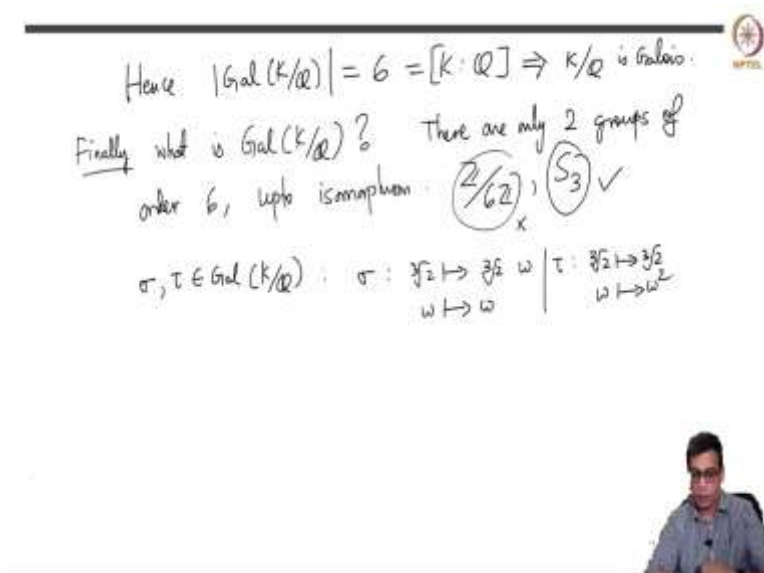 Hence |Gal(K/Q)| = 6 = [K : Q] ⇒ K/Q is Galois.
Finally what is Gal(K/Q)? There are only 2 groups of
order 6, upto isomorphism. Z/6Z x, S₃ ✓
σ, τ ∈ Gal(K/Q) : σ : ∛2 ↦ ∛2 ω | τ : ∛2 ↦ ∛2
ω ↦ ω ω ↦ ω²
NPTEL